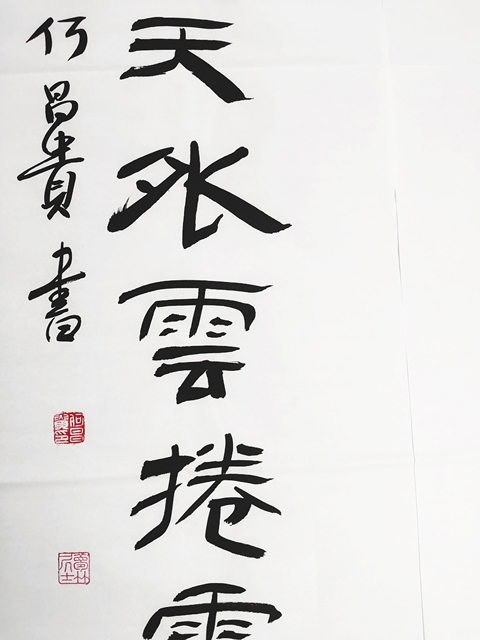 天外雲捲雲
何昌貴書